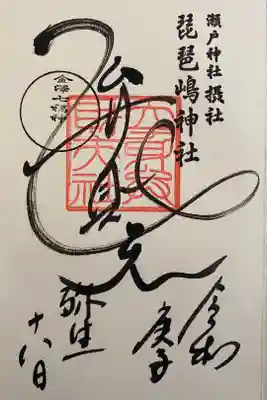 瀬戸神社 摂社
琵琶嶋神社
金澤七福神
令和
庚子
弥生
十八日